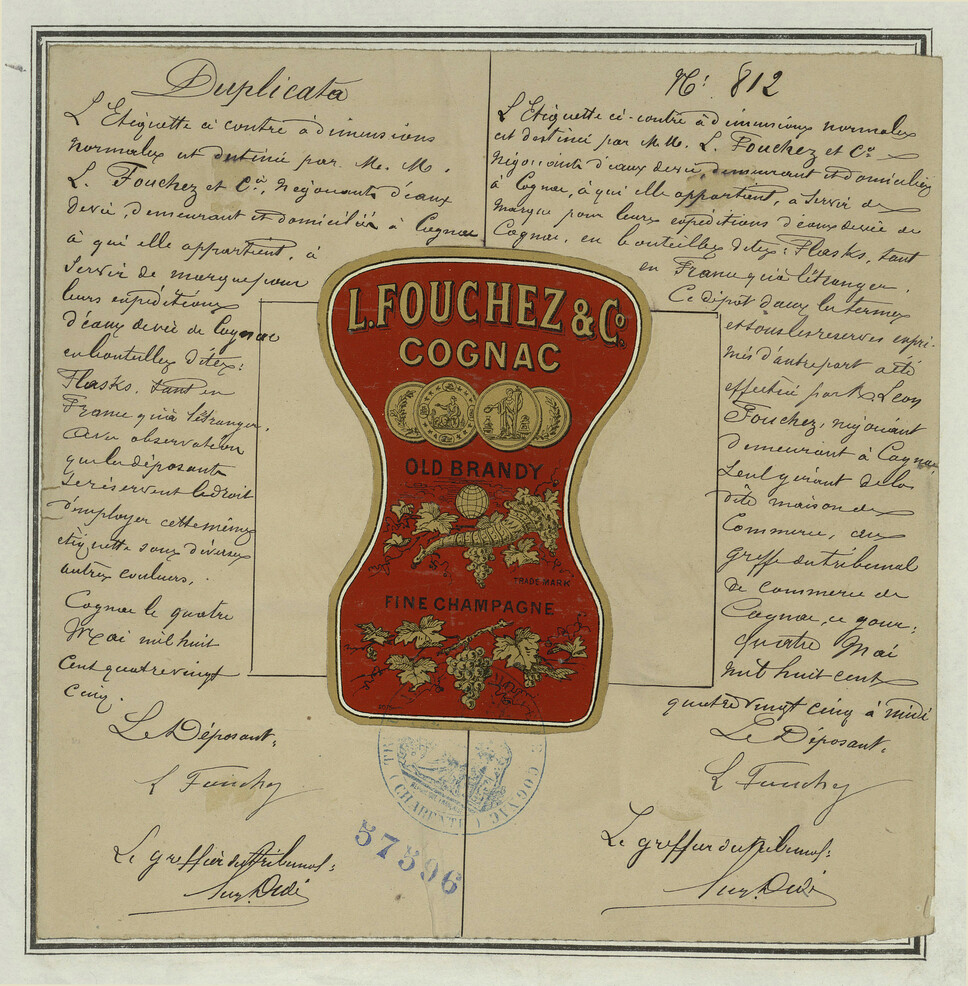 Duplicata
L'Etiquette ci contre à dimensions
normales est destinée par M. M.
L. Fouchez et Cie, Négociants d'eaux
devie, demeurant et domiciliés à Cognac
à qui elle appartient, à
servir de marque pour
leurs expéditions
d'eaux devie de Cognac
en bouteilles dites:
Flasks, tant en
France qu'à l'étranger.
Avec observation
que les déposants
se réservent le droit
d'employer cette même
étiquette sous diverses
autres couleurs.
Cognac le quatre
Mai mil huit
cent quatre vingt
cinq.
Le Déposant:
L Fouchez
Le greffier du tribunal:
N: 812
L'Etiquette ci-contre à dimensions normales
est destinée par M M. L. Fouchez et Co
Négociants d'eaux devie, demeurant et domiciliés
à Cognac, à qui elle appartient, a servir de
marque pour leurs expéditions d'eaux devie de
Cognac, en bouteilles dites: Flasks, tant
en France qu'à l'étranger.
Ce dépôt dans les termes
et sous les réserves expri-
més d'autre part a été
effectué par M Léon
Fouchez, négociant
demeurant à Cognac
seul gérant de la
dite maison de
Commerce, au
greffe du tribunal
de commerce de
Cognac, ce jour:
quatre Mai
mil huit cent
quatre vingt cinq à midi
Le Déposant:
L Fouchez
Le greffier du tribunal:
L. FOUCHEZ & Co.
COGNAC
OLD BRANDY
TRADE MARK
FINE CHAMPAGNE
COGNAC
CHARENTE
57596